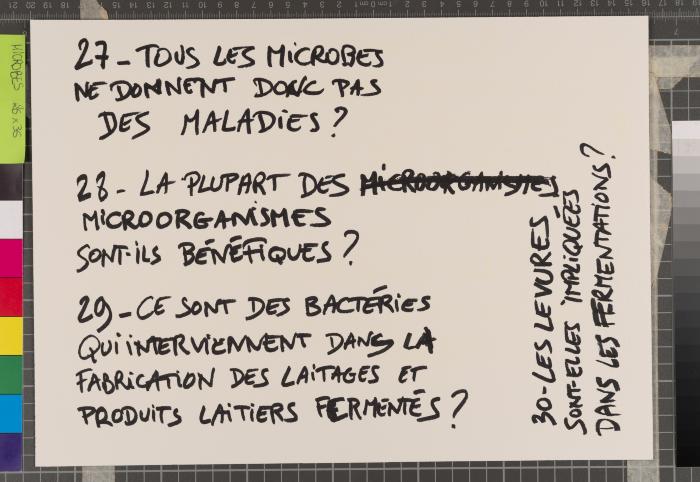 27- TOUS LES MICROBES
NE DONNENT DONC PAS
DES MALADIES ?
28- LA PLUPART DES MICROORGANISMES
MICROORGANISMES
SONT-ILS BÉNÉFIQUES ?
29- CE SONT DES BACTÉRIES
QUI INTERVIENNENT DANS LA
FABRICATION DES LAITAGES ET
PRODUITS LAITIERS FERMENTÉS ?
30- LES LEVURES
SONT-ELLES IMPLIQUÉES
DANS LES FERMENTATIONS ?
MICROBES